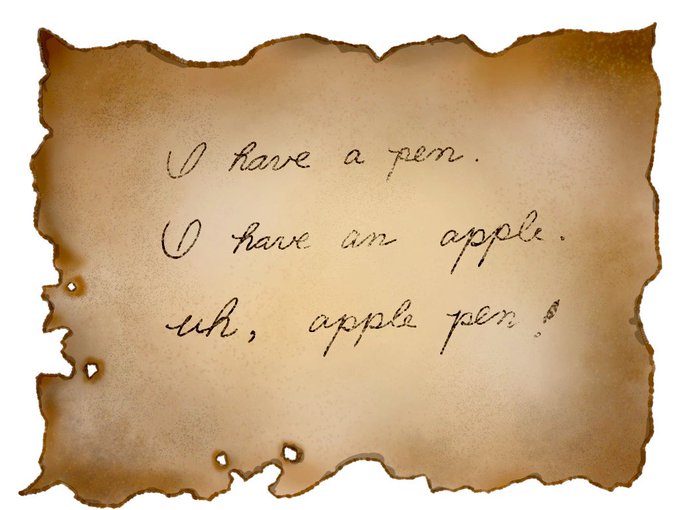 I have a pen.
I have an apple.
uh, apple pen!